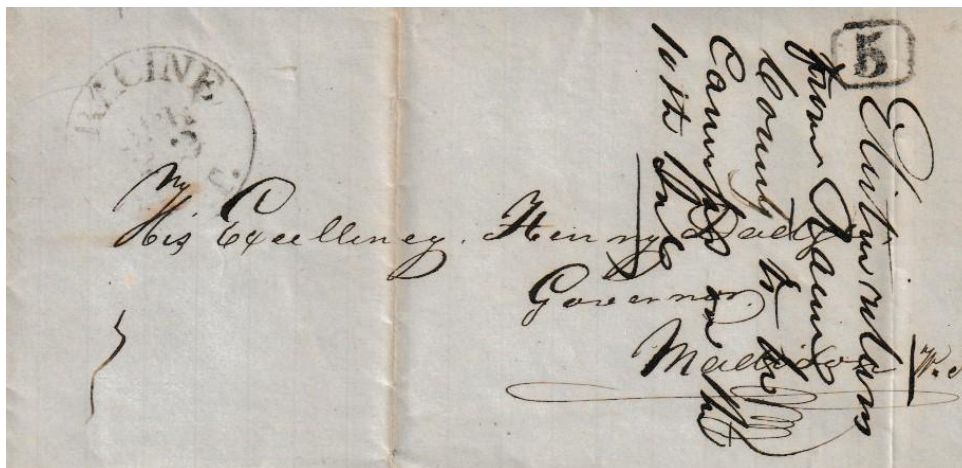 RACINE
5
His Excellency. Henry Dodge
Governor
Madison W.
Election returns
from Racine
County to the
Canvass on the
10th